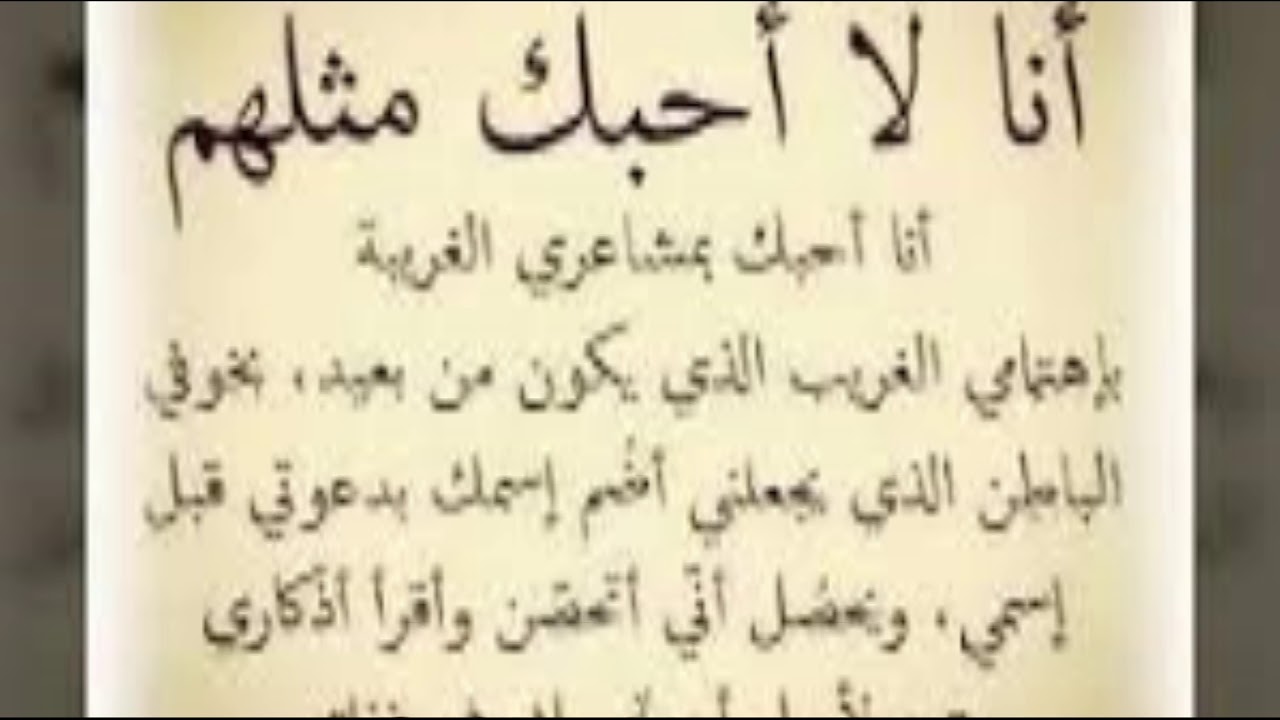 أنا لا أحبك مثلهم
أنا أحبك بمشاعري الغريبة
بإهتمامي الغريب الذي يكون من بعيد، بخوفي
الباطن الذي يجعلني أضُم إسمك بدعوتي قبل
إسمي، ويحصُل أنّي أتحصّن وأقرأ أذكاري